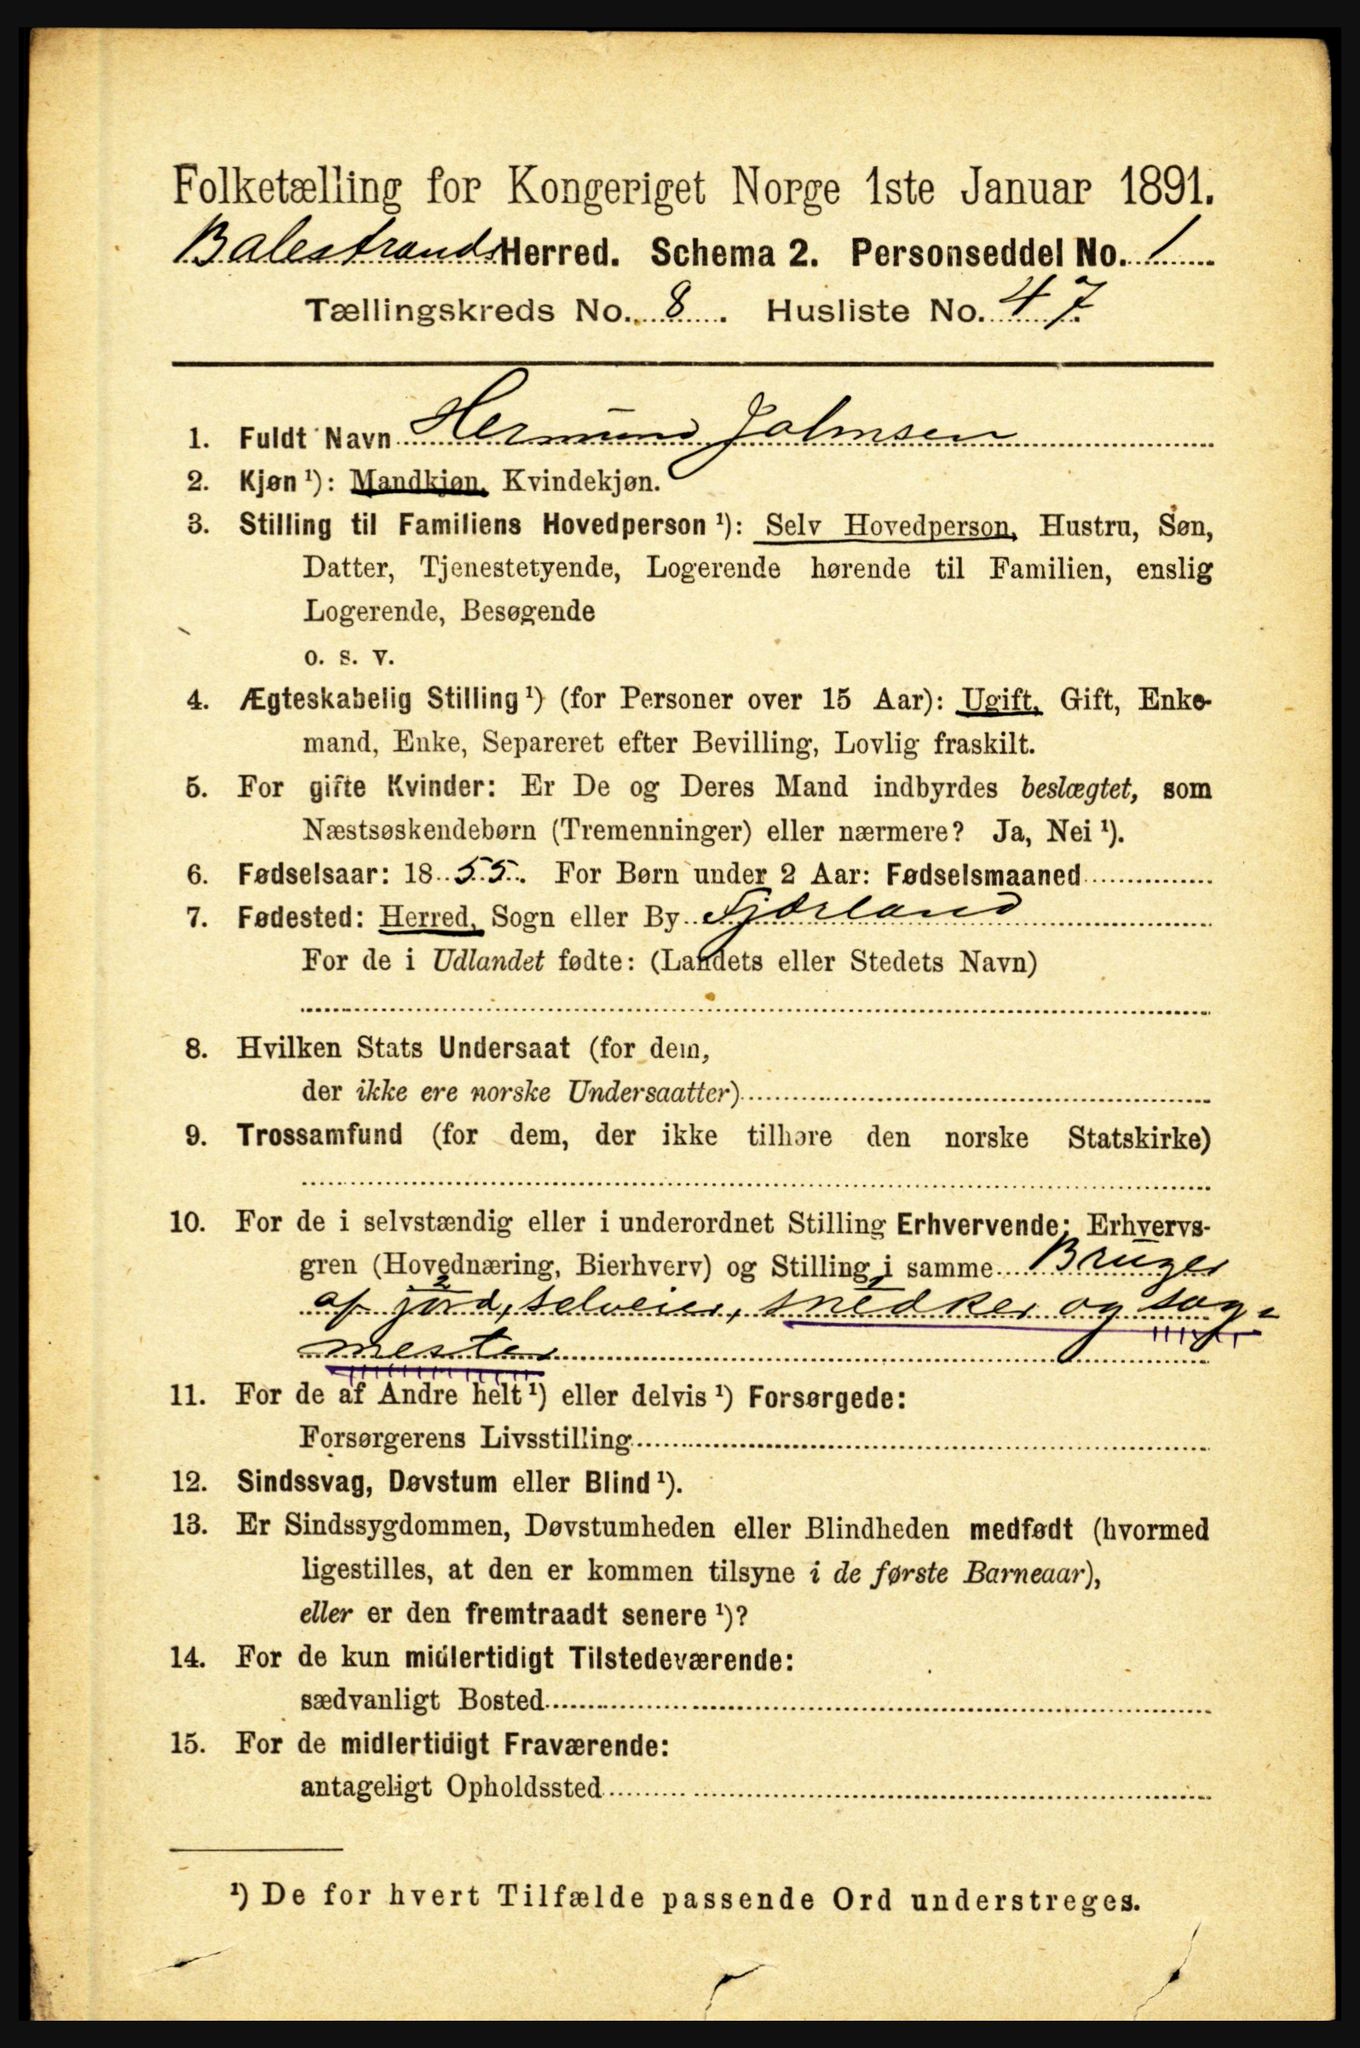 Folketælling for Kongeriget Norge 1ste Januar 1891.
Balestrands Herred. Schema 2. Personseddel No. 1
Tællingskreds No. 8. Husliste No. 47
1. Fuldt Navn Hermund Johnsen
2. Kjøn ¹): Mandkjøn, Kvindekjøn.
3. Stilling til Familiens Hovedperson ¹): Selv Hovedperson, Hustru, Søn,
Datter, Tjenestetyende, Logerende hørende til Familien, enslig
Logerende, Besøgende
o. s. v.
4. Ægteskabelig Stilling ¹) (for Personer over 15 Aar): Ugift, Gift, Enke-
mand, Enke, Separeret efter Bevilling, Lovlig fraskilt.
5. For gifte Kvinder: Er De og Deres Mand indbyrdes beslægtet, som
Næstsøskendebørn (Tremenninger) eller nærmere? Ja, Nei ¹).
6. Fødselsaar: 1855. For Børn under 2 Aar: Fødselsmaaned
7. Fødested: Herred, Sogn eller By Fjærland
For de i Udlandet fødte: (Landets eller Stedets Navn)
8. Hvilken Stats Undersaat (for dem,
der ikke ere norske Undersaatter)
9. Trossamfund (for dem, der ikke tilhøre den norske Statskirke)
10. For de i selvstændig eller i underordnet Stilling Erhvervende: Erhvervs-
gren (Hovednæring, Bierhverv) og Stilling i samme Bruger
af jord, selveier, snedker og sag-
mester
11. For de af Andre helt ¹) eller delvis ¹) Forsørgede:
Forsørgerens Livsstilling
12. Sindssvag, Døvstum eller Blind ¹).
13. Er Sindssygdommen, Døvstumheden eller Blindheden medfødt (hvormed
ligestilles, at den er kommen tilsyne i de første Barneaar),
eller er den fremtraadt senere ¹)?
14. For de kun midlertidigt Tilstedeværende:
sædvanligt Bosted
15. For de midlertidigt Fraværende:
antageligt Opholdssted
¹) De for hvert Tilfælde passende Ord understreges.